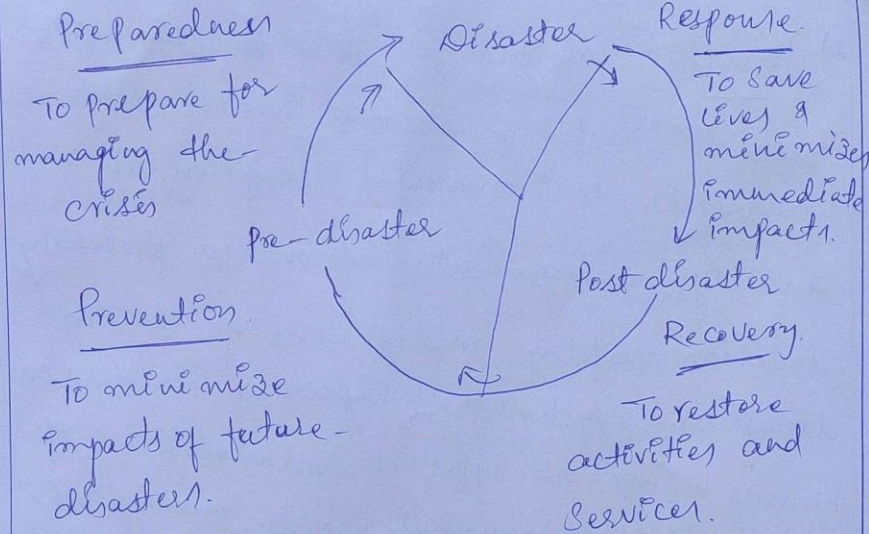 Preparedness
To prepare for
managing the
crisis
Disaster
Response.
To save
lives &
minimizes
immediate
impacts.
Pre-disaster
Post disaster
Prevention.
To minimize
impacts of future
disasters.
Recovery.
To restore
activities and
services.